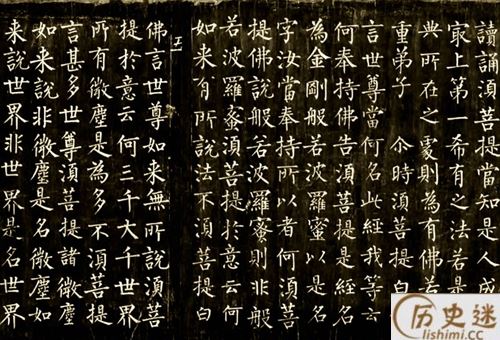 讀誦湏菩提當知是人成
㝡上第一希有之法若是
典所在之處則為有佛若
重弟子 尒時湏菩提白
言世尊當何名此經我等云
何奉持佛告湏菩提是經名
為金剛般若波羅蜜以是名
字汝當奉持所以者何湏菩
提佛說般若波羅蜜則非般
若波羅蜜湏菩提於意云何
如来有所說法不湏菩提白
佛言世尊如来無所說湏菩
提於意云何三千大千世界
所有微塵是為多不湏菩提
言甚多世尊湏菩提諸微塵
如来說非微塵是名微塵如
来說世界非世界是名世界
历史迷
lishimi.cc